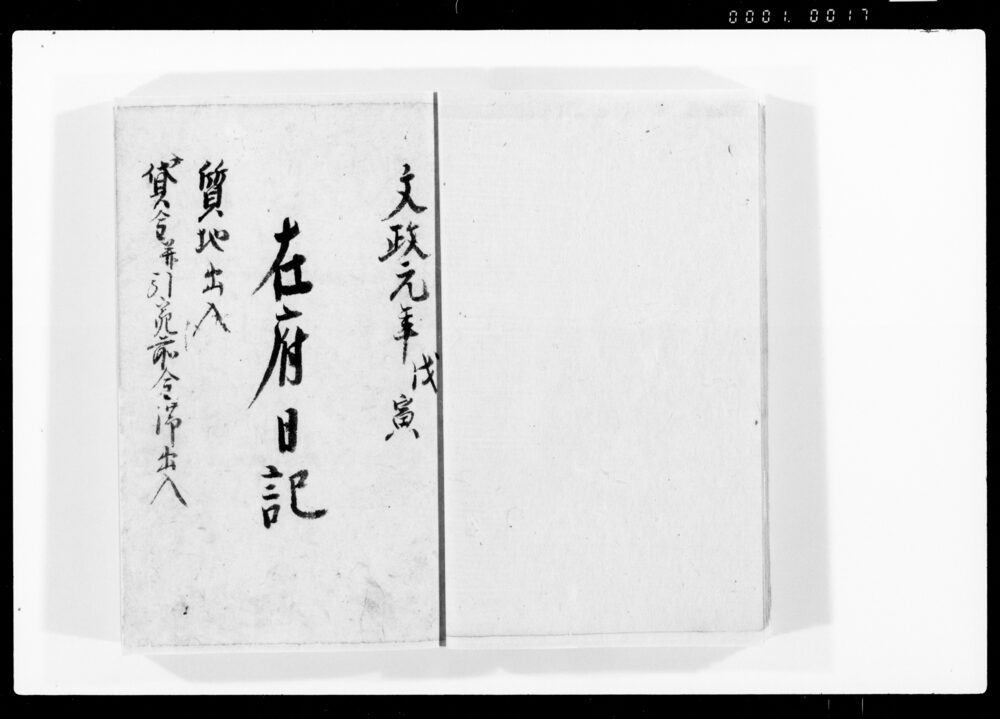 0001.0017
文政元年戊寅
在府日記
質地出入
貸金并引苑前金滞出入